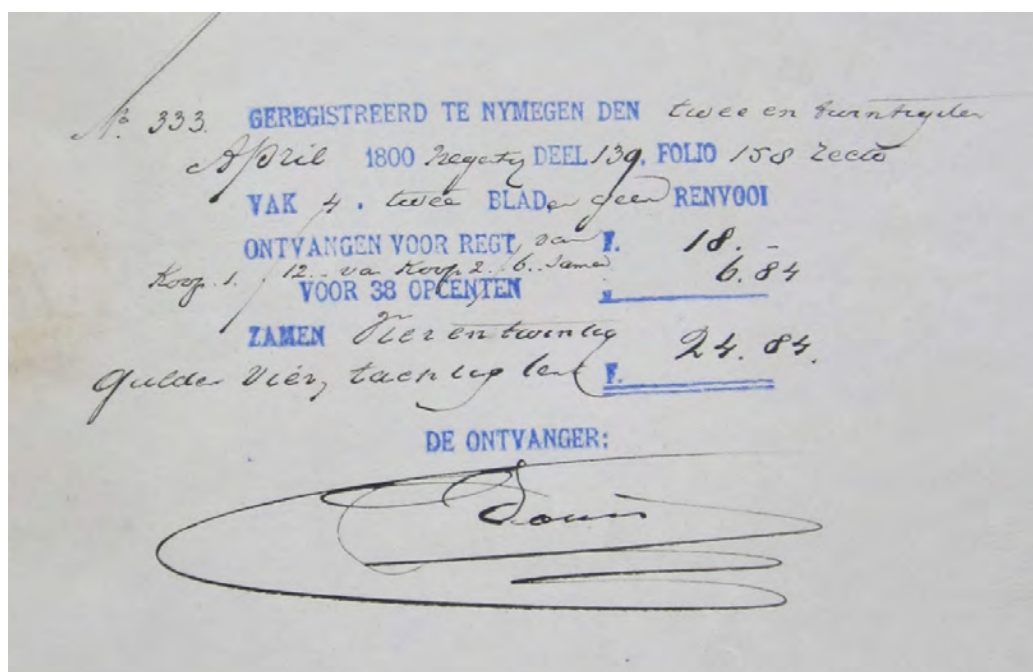 No. 333. GEREGISTREERD TE NYMEGEN DEN twee en twintigsten
April 1800 negentig DEEL 139. FOLIO 158 recto
VAK 4. twee BLADen geen RENVOOI
ONTVANGEN VOOR REGT, van F. 18.-
Koop 1. 12.- van Koop 2. 6.. Samen 6.84
VOOR 38 OPCENTEN
ZAMEN Vier en twintig 24.84.
Gulden Vier tachtig Cent F.
DE ONTVANGER: